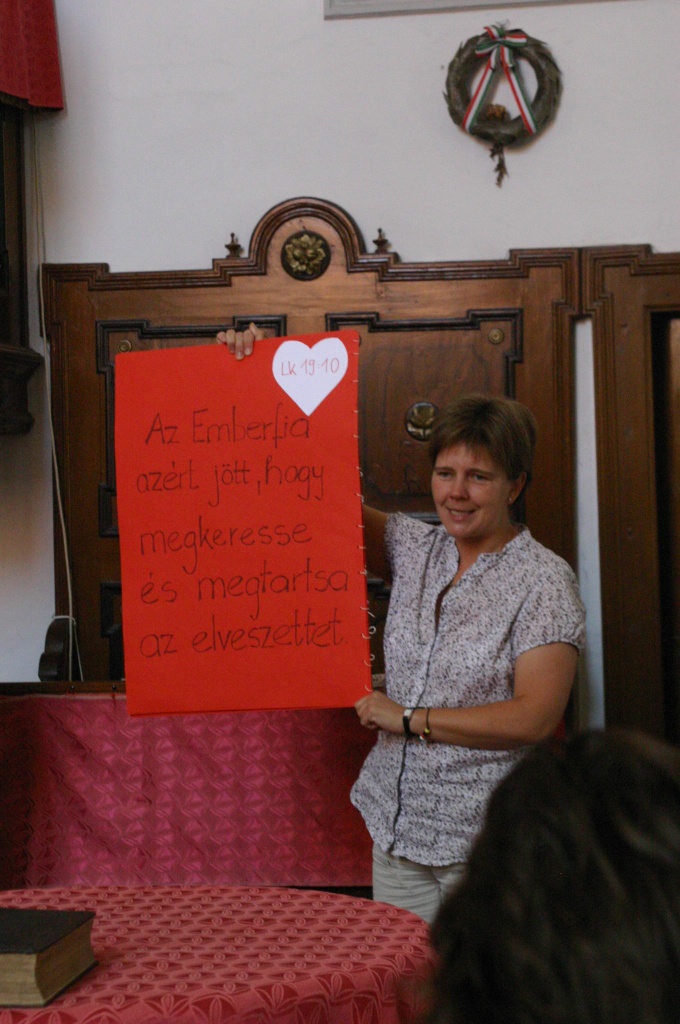 Lk 19.10
Az Emberfia
azért jött, hogy
megkeresse
és megtartsa
az elveszettet.